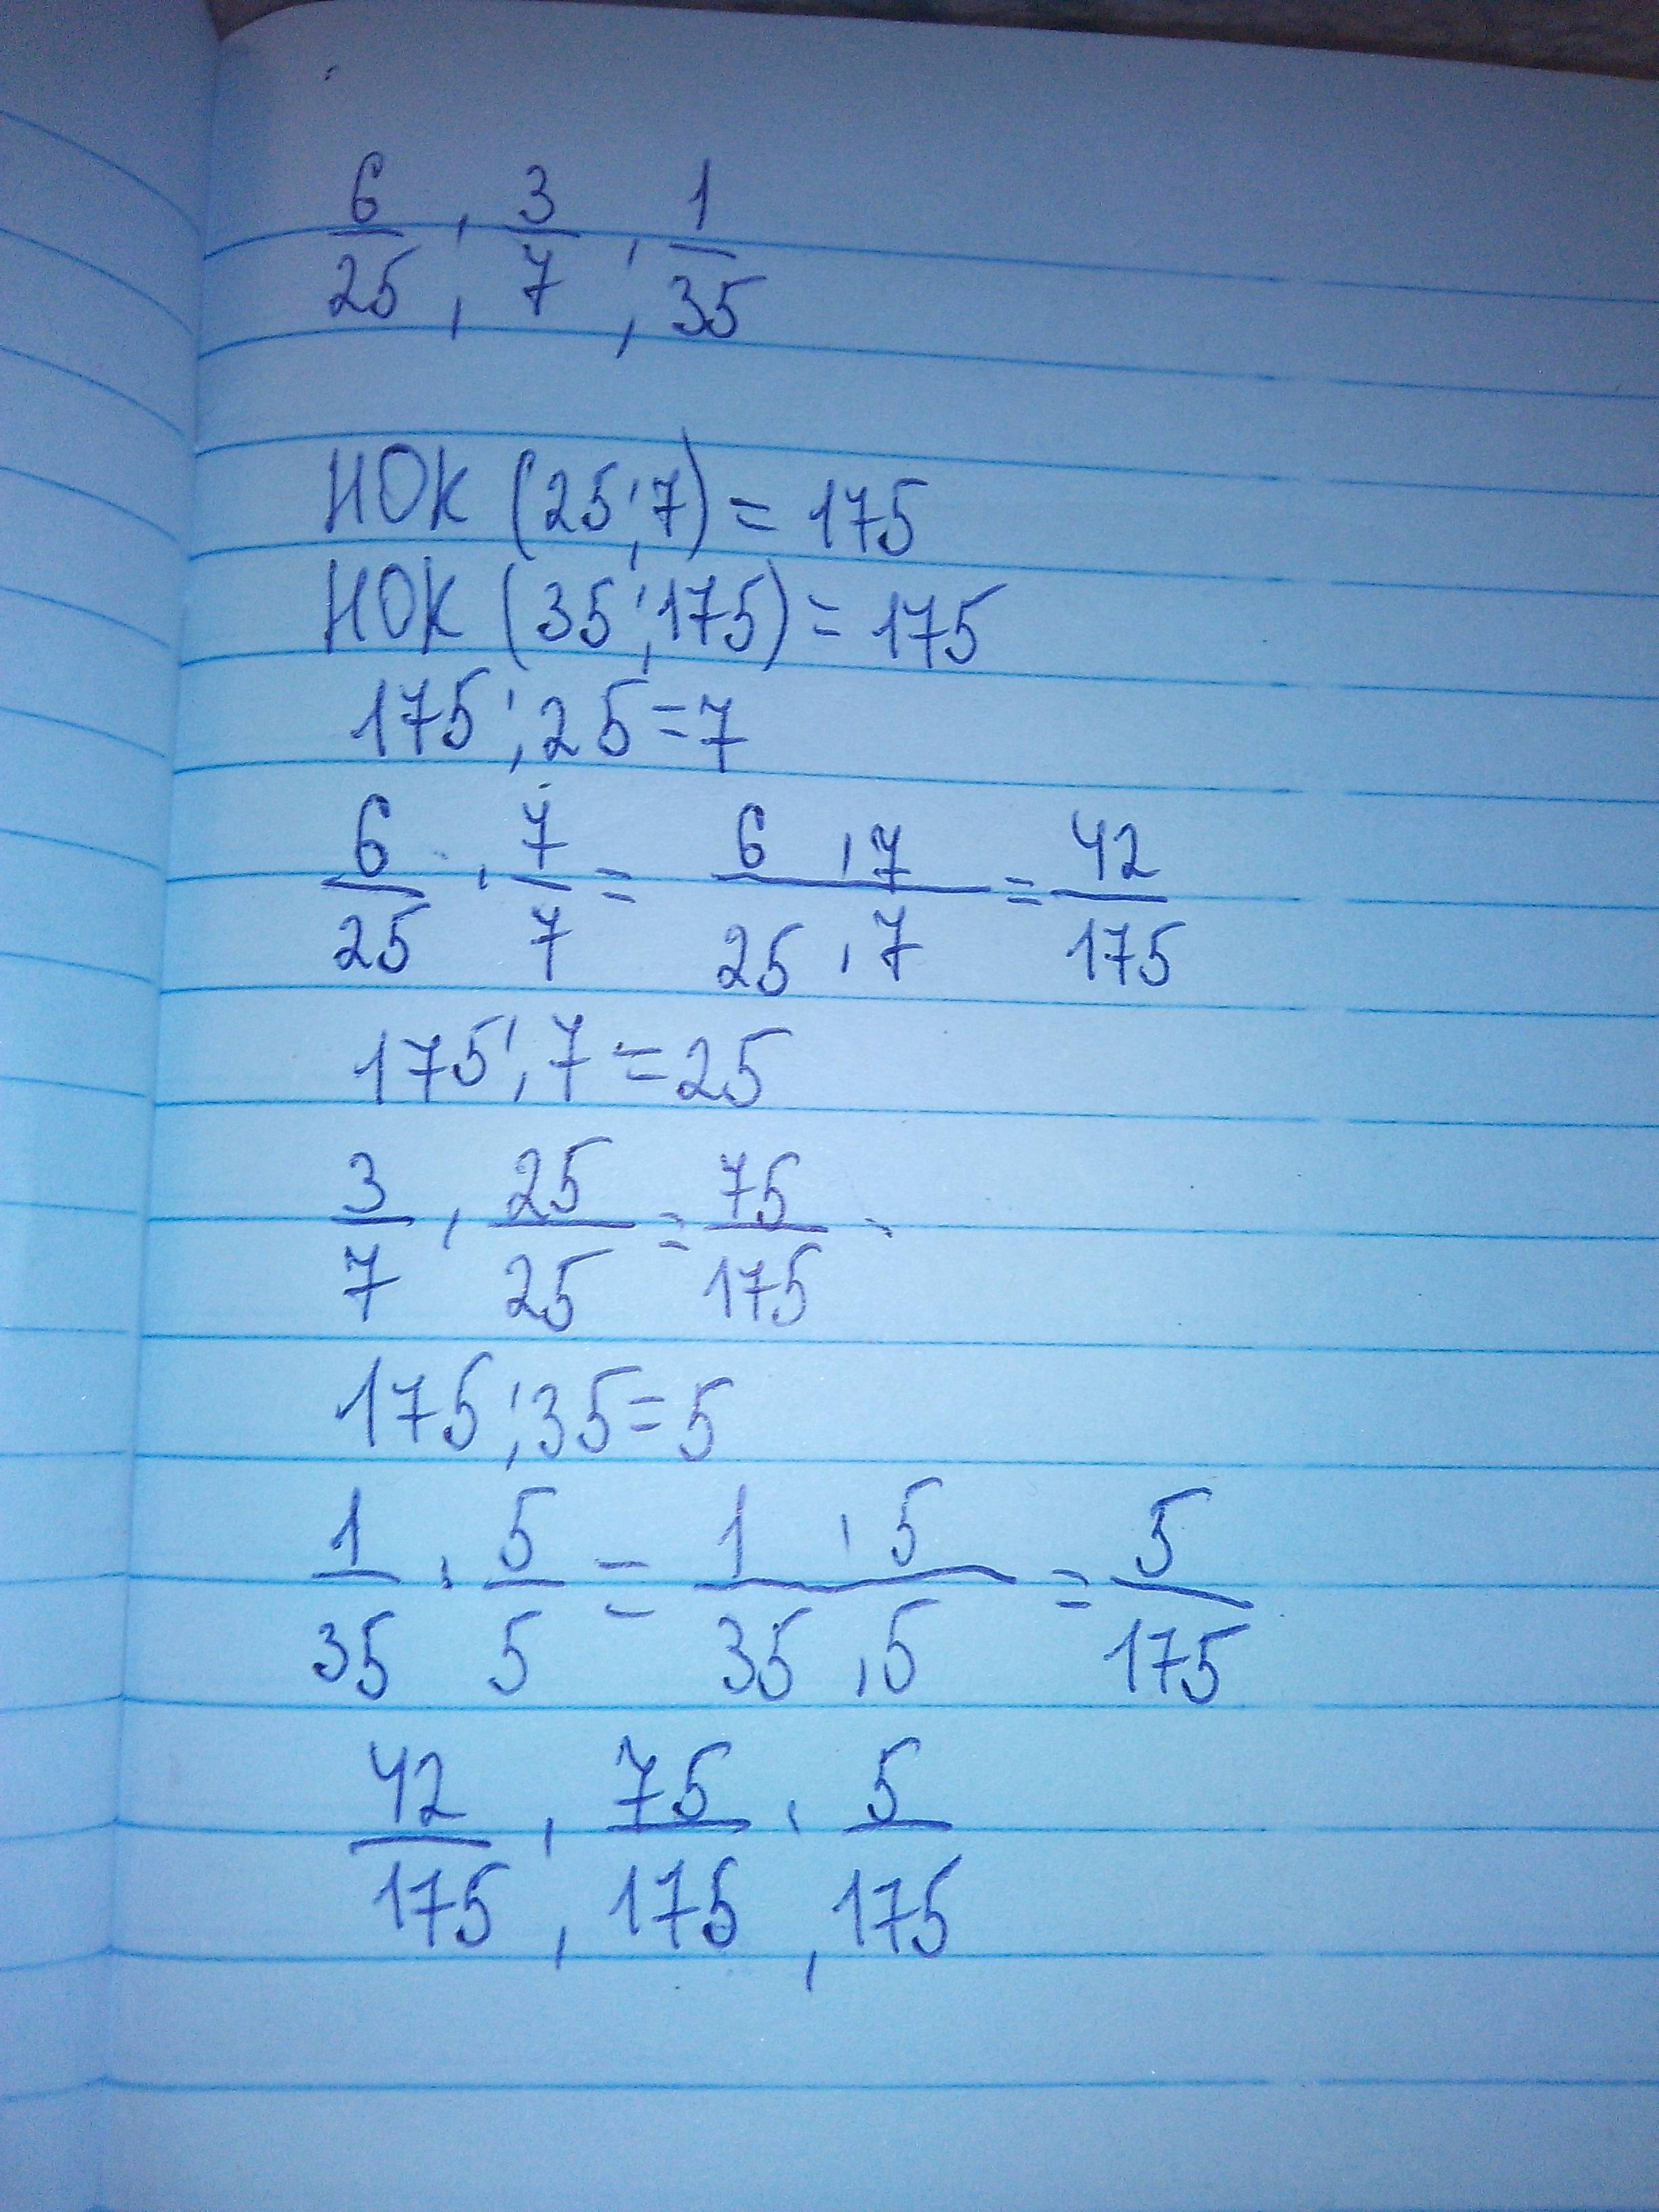 6/25 ; 3/7 ; 1/35
НОК (25;7) = 175
НОК (35;175) = 175
175:25=7
6/25 · 7/7 = 6·7/25·7 = 42/175
175:7=25
3/7 · 25/25 = 75/175
175:35=5
1/35 · 5/5 = 1·5/35·5 = 5/175
42/175 ; 75/175 ; 5/175